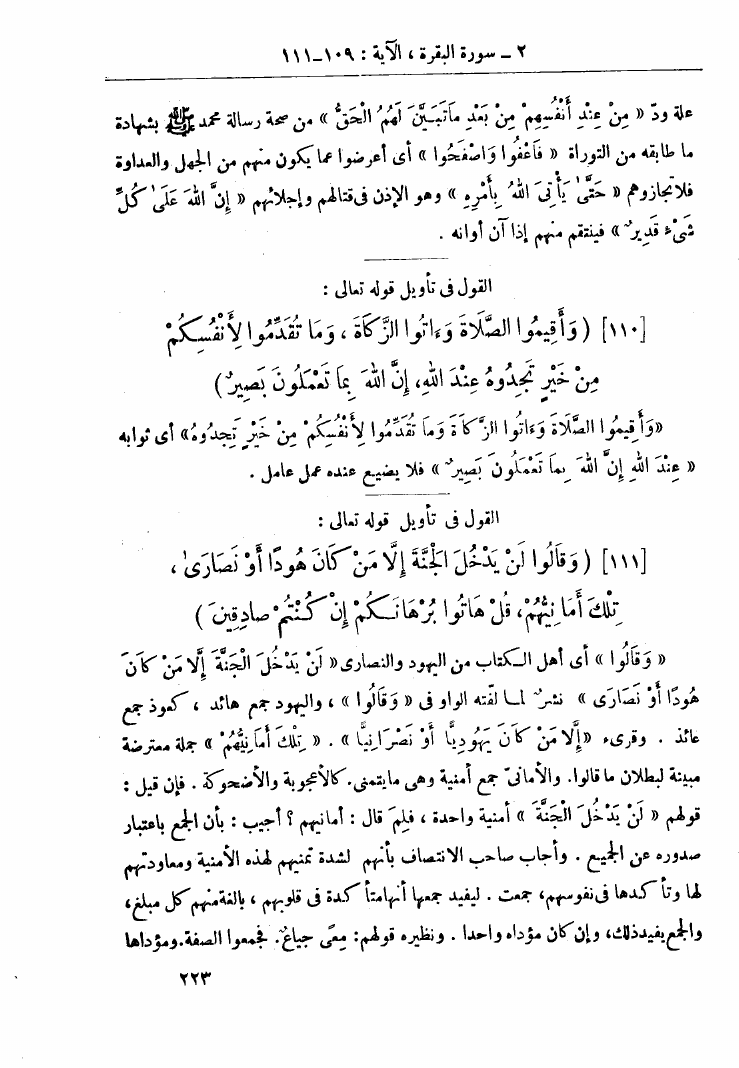 ٢ ــ سورة البقرة ، الآية : ١٠٩ــ١١١
علة ودّ « مِنْ عِنْدِ أَنْفُسِهِمْ مِنْ بَعْدِ مَاتَبَيَّنَ لَهُمُ الْحَقُّ » من صحة رسالة محمد ﷺ بشهادة
ما طابقه من التوراة « فَاعْفُوا وَاصْفَحُوا » أى أعرضوا عما يكون منهم من الجهل والعداوة
فلاتجازوهم « حَتَّىٰ يَأْتِىَ اللهُ بِأَمْرِهِ » وهو الإذن فى قتالهم وإجلائهم « إِنَّ اللهَ عَلَىٰ كُلِّ
شَىْءٍ قَدِيرٌ » فينتقم منهم إذا آن أوانه .
القول فى تأويل قوله تعالى :
[١١٠] ( وَأَقِيمُوا الصَّلَاةَ وَءَاتُوا الزَّكَاةَ ، وَمَا تُقَدِّمُوا لِأَنْفُسِكُمْ
مِنْ خَيْرٍ تَجِدُوهُ عِنْدَ اللهِ، إِنَّ اللهَ بِمَا تَعْمَلُونَ بَصِيرٌ )
«وَأَقِيمُوا الصَّلَاةَ وَءَاتُوا الزَّكَاةَ وَمَا تُقَدِّمُوا لِأَنْفُسِكُمْ مِنْ خَيْرٍ تَجِدُوهُ» أى ثوابه
« عِنْدَ اللهِ إِنَّ اللهَ بِمَا تَعْمَلُونَ بَصِيرٌ » فلا يضيع عنده عمل عامل .
القول فى تأويل قوله تعالى :
[١١١] ( وَقَالُوا لَنْ يَدْخُلَ الْجَنَّةَ إِلَّا مَنْ كَانَ هُودًا أَوْ نَصَارَىٰ ،
تِلْكَ أَمَانِيُّهُمْ، قُلْ هَاتُوا بُرْهَانَكُمْ إِنْ كُنْتُمْ صَادِقِينَ )
« وَقَالُوا » أى أهل الكتاب من اليهود والنصارى « لَنْ يَدْخُلَ الْجَنَّةَ إِلَّا مَنْ كَانَ
هُودًا أَوْ نَصَارَى » نشرٌ لما لفّته الواو فى « وَقَالُوا » ، واليهود جمع هائد ، كعوذ جمع
عائذ . وقرىء «إِلَّا مَنْ كَانَ يَهُودِيًّا أَوْ نَصْرَانِيًّا » . « تِلْكَ أَمَانِيُّهُمْ » جملة معترضة
مبينة لبطلان ما قالوا. والأمانىّ جمع أمنية وهى مايتمنى.كالأعجوبة والأضحوكة . فإن قيل :
قولهم « لَنْ يَدْخُلَ الْجَنَّةَ » أمنية واحدة ، فلِمَ قال : أمانيهم ؟ أجيب : بأن الجمع باعتبار
صدوره عن الجميع . وأجاب صاحب الانتصاف بأنهم لشدة تمنيهم لهذه الأمنية ومعاودتهم
لها وتأكدها فى نفوسهم، جمعت . ليفيد جمعها أنهامتأكدة فى قلوبهم ، بالغةمنهم كل مبلغ،
والجمع يفيدذلك، وإن كان مؤداه واحدا . ونظيره قولهم: مِعًى جياعٌ. فجمعوا الصفة.ومؤداها
٢٢٣